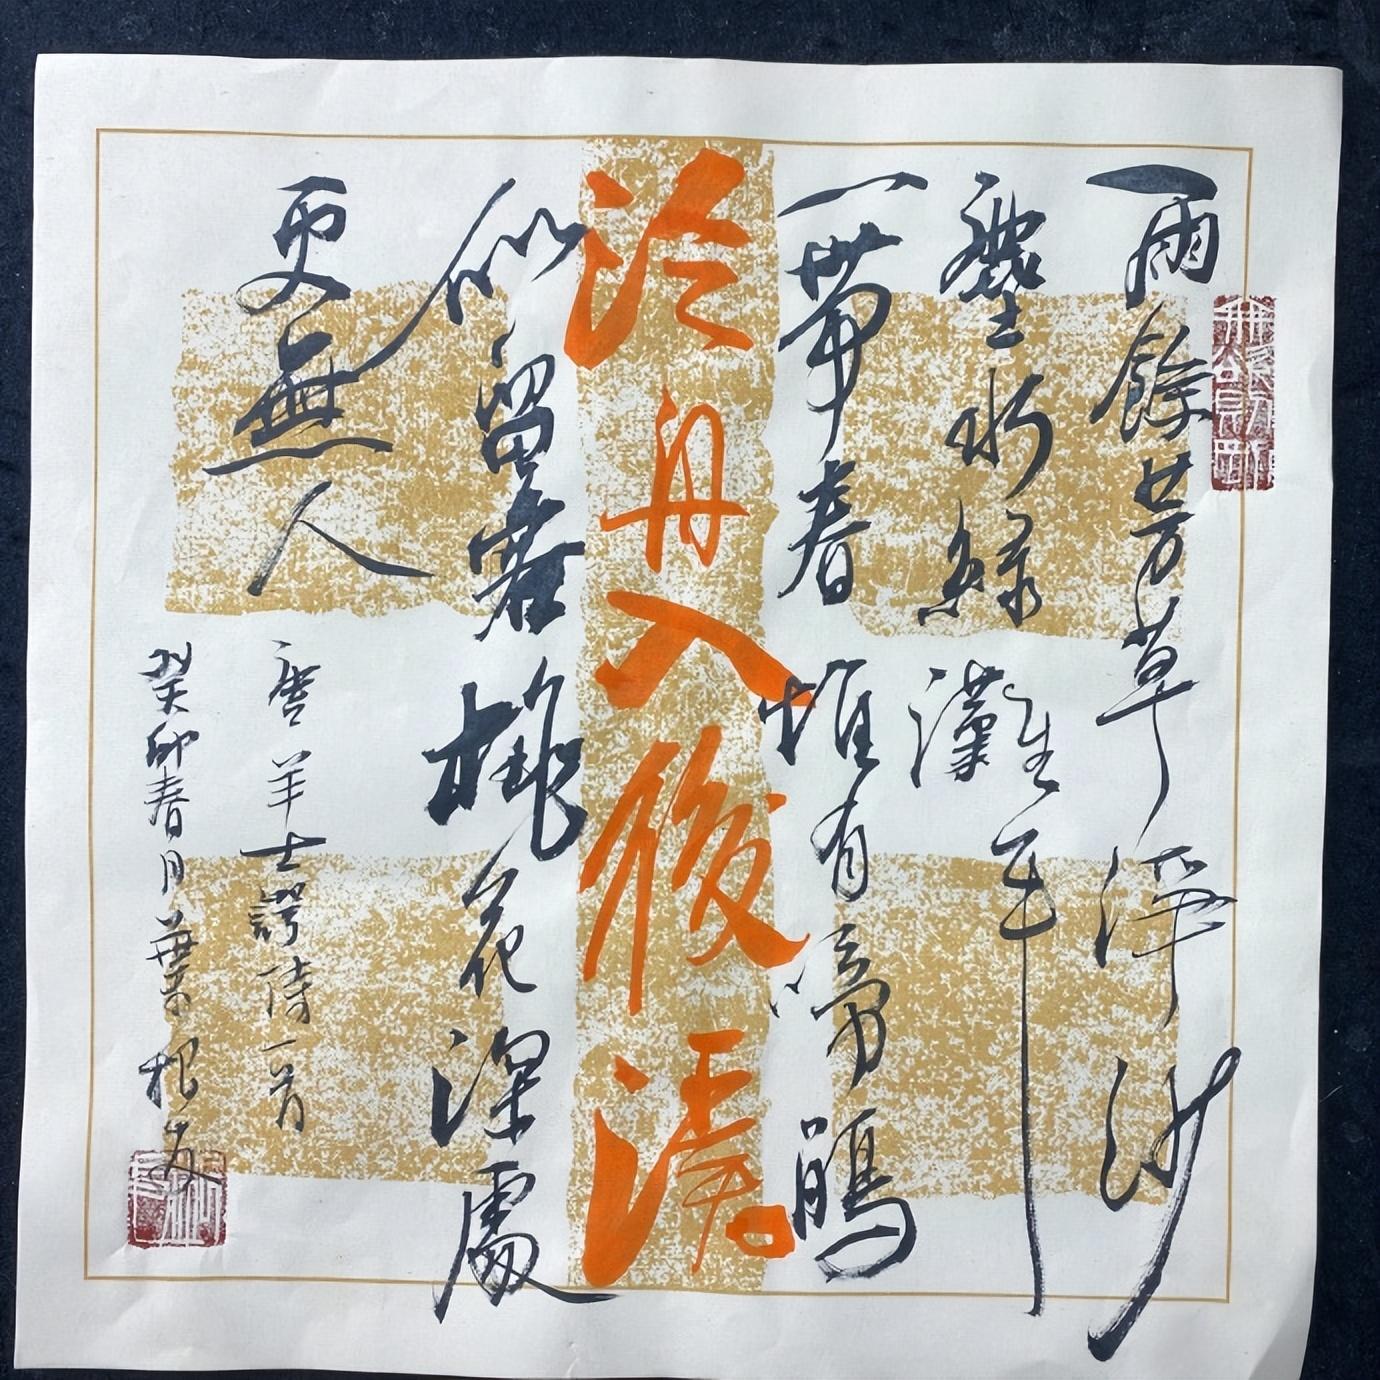 雨餘芳草淨沙
塵水綠灘平
一帶春惟有啼鵑
泛舟入後溪
似留客桃花深處
更無人
唐羊士諤詩一首
癸卯春月葉根友